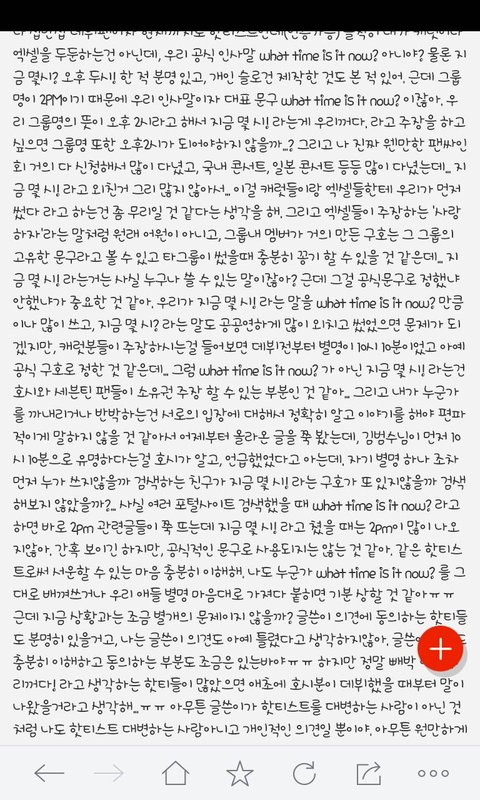 엑셀을 두둔하는건 아닌데, 우리 공식 인사말 what time is it now? 아니야? 물론 지
금 몇시? 오후 두시! 한 적 분명 있고, 개인 슬로건 제작한 것도 본 적 있어. 근데 그룹
명이 2PM이기 때문에 우리 인사말이자 대표 문구 what time is it now? 이잖아. 우
리 그룹명의 뜻이 오후 2시라고 해서 지금 몇 시! 라는게 우리꺼다. 라고 주장을 하고
싶으면 그룹명 또한 오후2시가 되어야하지 않을까..? 그리고 나 진짜 웬만한 팬싸인
회 거의 다 신청해서 많이 다녔고, 국내 콘서트, 일본 콘서트 등등 많이 다녔는데... 지
금 몇 시! 라고 외친거 그리 많지 않아서... 이걸 캐럿들이랑 엑셀들한테 우리가 먼저
썼다 라고 하는건 좀 무리일 것 같다는 생각을 해. 그리고 엑셀들이 주장하는 '사랑
하자'라는 말처럼 원래 어원이 아니고, 그룹내 멤버가 거의 만든 구호는 그 그룹의
고유한 문구라고 볼 수 있고 타그룹이 썼을때 충분히 꽁기 할 수 있을 것 같은데... 지
금 몇 시! 라는거는 사실 누구나 쓸 수 있는 말이잖아? 근데 그걸 공식문구로 정했냐
안했냐가 중요한 것 같아. 우리가 지금 몇 시! 라는 말을 what time is it now? 만큼
이나 많이 쓰고, 지금 몇 시? 라는 말도 공공연하게 많이 외치고 썼었으면 문제가 되
겠지만, 캐럿분들이 주장하시는걸 들어보면 데뷔전부터 별명이 10시 10분이었고 아예
공식 구호로 정한 것 같은데... 그럼 what time is it now? 가 아닌 지금 몇 시! 라는건
호시와 세븐틴 팬들이 소유권 주장 할 수 있는 부분인 것 같아... 그리고 내가 누군가
를 까내리거나 반박하는건 서로의 입장에 대해서 정확히 알고 이야기를 해야 편파
적이게 말하지 않을 것 같아서 어제부터 올라온 글을 쭉 봤는데, 김범수님이 먼저 10
시 10분으로 유명하다는걸 호시가 알고, 언급했었다고 아는데. 자기 별명 하나 조차
먼저 누가 쓰지않을까 검색하는 친구가 지금 몇 시! 라는 구호가 또 있지않을까 검색
해보지 않았을까?... 사실 여러 포털사이트 검색했을 때 what time is it now? 라고
하면 바로 2pm 관련글들이 쭉 뜨는데 지금 몇 시! 라고 쳤을 때는 2pm이 많이 나오
지않아. 간혹 보이긴 하지만, 공식적인 문구로 사용되지는 않는 것 같아. 같은 핫티스
트로써 서운할 수 있는 마음 충분히 이해해. 나도 누군가 what time is it now? 를 그
대로 배껴쓰거나 우리 애들 별명 마음대로 가져다 붙히면 기분 상할 것 같아ㅠㅠ
근데 지금 상황과는 조금 별개의 문제이지 않을까? 글쓴이 의견에 동의하는 핫티들
도 분명히 있을거고, 나는 글쓴이 의견도 아예 틀렸다고 생각하지않아. 글쓴
충분히 이해하고 동의하는 부분도 조금은 있는바야ㅠㅠ 하지만 정말 빼박
리꺼다! 라고 생각하는 핫티들이 많았으면 애초에 호시분이 데뷔했을 때부터 말이
나왔을거라고 생각해...ㅠㅠ 아무튼 글쓴이가 핫티스트를 대변하는 사람이 아닌 것
처럼 나도 핫티스트 대변하는 사람아니고 개인적인 의견일 뿐이야. 아무튼 원만하게